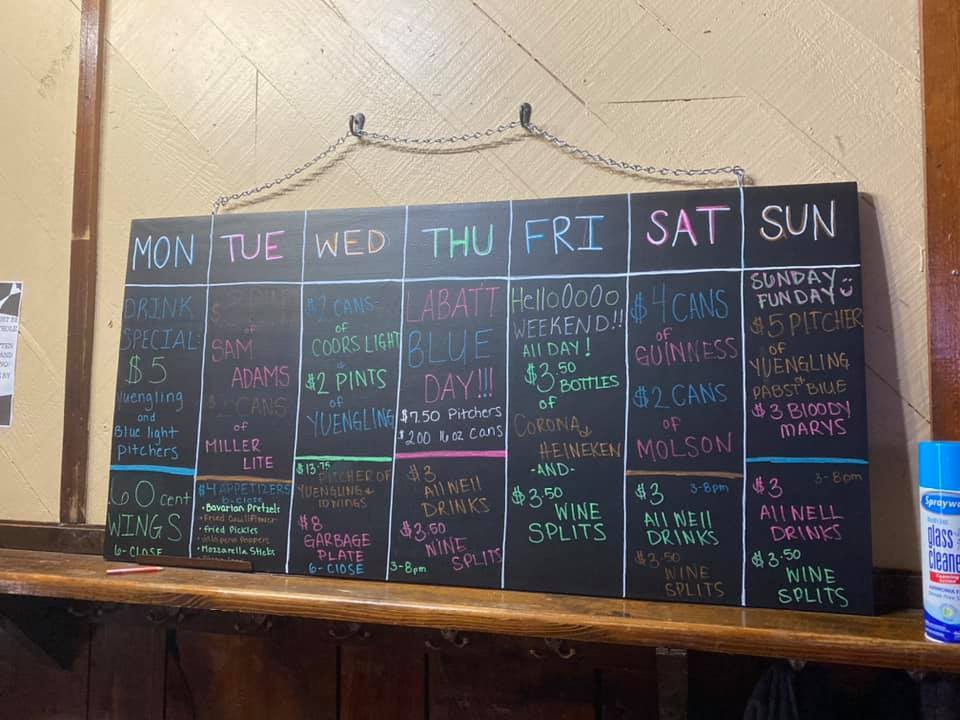 MON
TUE
WED
THU
FRI
SAT
SUN
DRINK
SPECIAL:
$5
Yuengling
and
Blue light
pitchers
60 cent
WINGS
6-CLOSE
of
SAM
ADAMS
$2 CANS
of
MILLER
LITE
$4 APPETIZERS
6-close
• Bavarian Pretzels
• Fried Cauliflower
• fried Pickle
• Jalapeno Poppers
• Mozzarella Sticks
$2 CANS
of
COORS LIGHT
$2 PINTS
of
YUENGLING
$13.75
PITCHER OF
YUENGLING &
10 WINGS
$8
GARBAGE
PLATE
6-CLOSE
LABATT
BLUE
DAY!!!
$7.50 Pitchers
$2.00 16 oz cans
$3
All Well
DRINKS
$3.50
WINE
SPLITS
3-8pm
Hello0ooo
WEEKEND!!
All DAY!
$3.50
BOTTLES
of
CORONA &
HEINEKEN
-AND-
$3.50
WINE
SPLITS
$4 CANS
of
GUINNESS
$2 CANS
of
MOLSON
$3 3-8pm
All Well
DRINKS
$3.50
WINE
SPLITS
SUNDAY
FUNDAY
$5 PITCHER
of
YUENGLING
PABST BLUE
$3 BLOODY
MARYS
3-8pm
$3
All WELL
DRINKS
$3.50
WINE
SPLITS
Sprayway
glass
cleaner